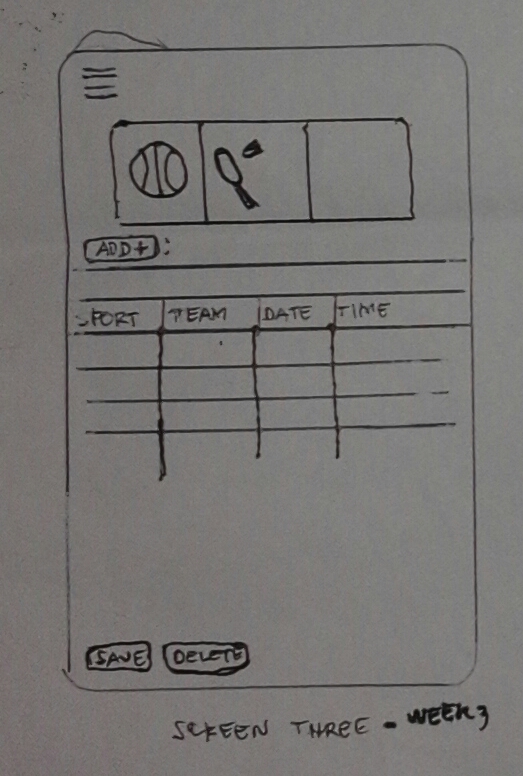 ADD+ :
SPORT TEAM DATE TIME
SAVE DELETE
SCREEN THREE - WEEK 3